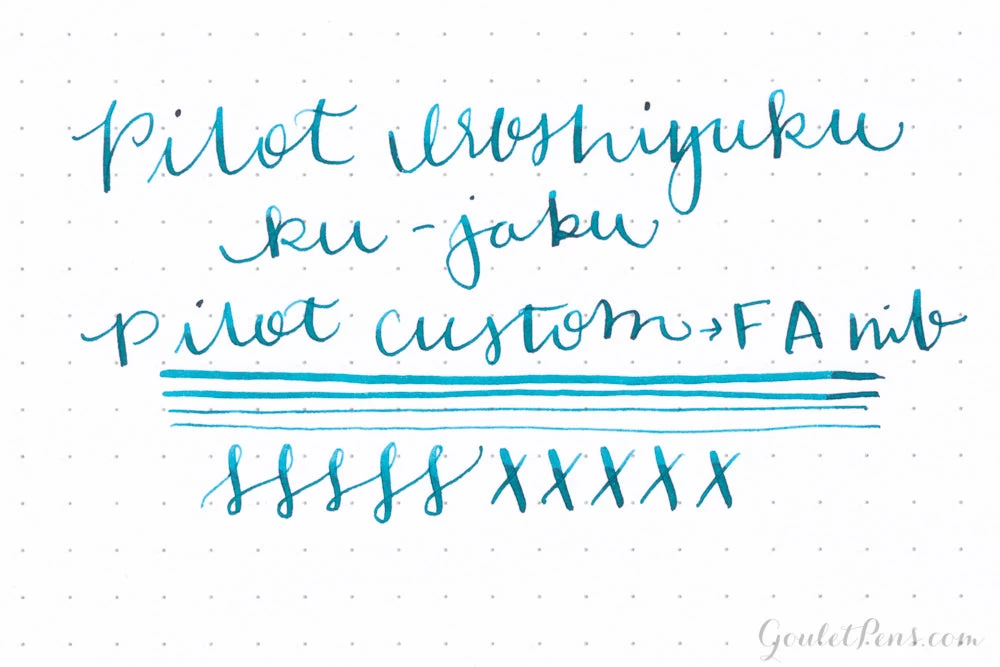 Pilot Iroshizuku
ku-jaku
Pilot Custom → FA nib
sssss xxxxx
GouletPens.com